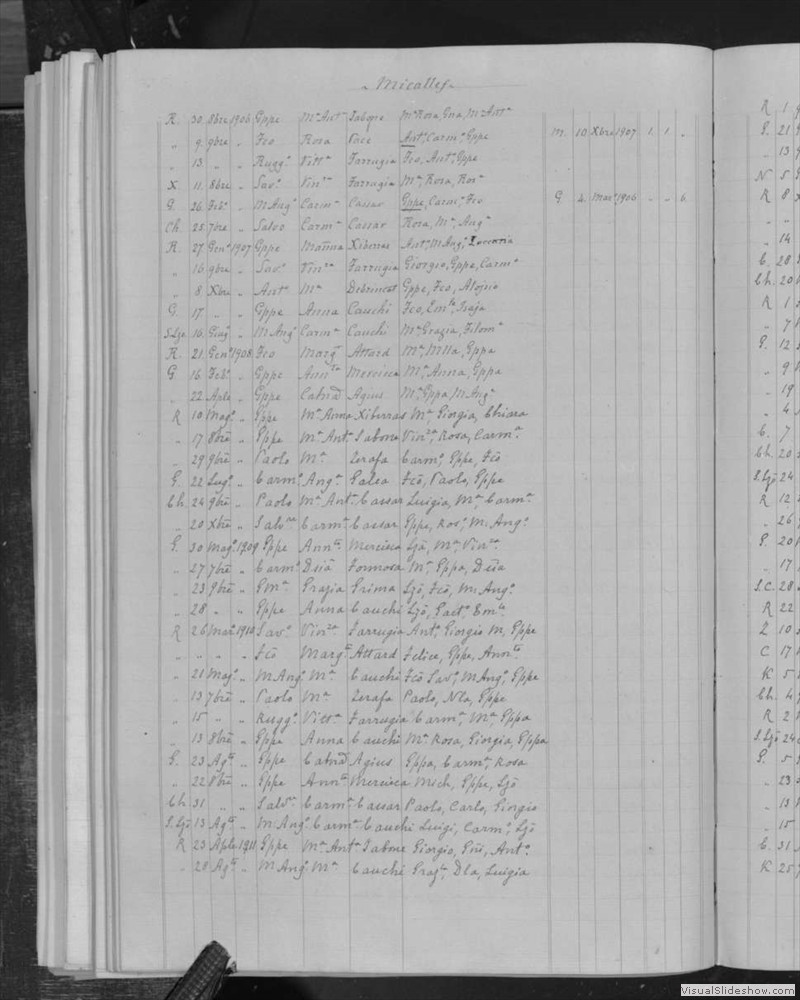 Micallef
R. 30 8bre 1906 Gppe Ma Anta Tabone Ma Rosa Gna, Ma Anta
„ 9 9bre „ Fco Rosa Pace Anto, Carma, Gppe m. 10 Xbre 1907 1. 1. „
„ 13 „ „ Ruggo Vitta Farrugia Fco, Anto, Gppe
X 11 8bre „ Savo Vinza Farrugia Ma, Rosa,
G. 26 Febo „ M Ango Carma Cassar Gppe, Carmo, Fco G. 2. Marzo 1906 „ „ 6.
Ch. 25 7bre „ Salvo Carma Cassar Rosa, Ma, Anga
R. 27 Geno 1907 Gppe Xiberras Anto, M Ango,
„ 16 9bre „ Savo Vinza Farrugia Giorgio, Gppe, Carmo
„ 8 Xbre „ Anto Ma Debrincat Gppe, Fco, Aloisio
G. 17 „ „ Gppe Anna Cauchi Fco, Emle, Isaja
S.Lza 16 Giugo „ M Ango Carma Cauchi Ma Grazia, Filoma
R. 21 Geno 1908 Fco Margta Attard Ma, Mlla, Gppa
G. 16 Febo „ Gppe Annta Mercieca Ma, Anna, Gppa
„ 22 Aple „ Gppe Catnā Agius Ma, Gppa, M Anga
R 10 Mago „ Gppe Ma Anna Xiberras Ma, Giorgia, Chiara
„ 17 8brē „ Gppe Ma Anta Tabone Vinza, Rosa, Carma
„ 29 9brē „ Paolo Ma Zerafa Carmo, Gppe, Fcō
G. 22 Lugo „ Carmo Anga Galea Fcō, Paolo, Gppe
Ch. 24 9brē „ Paolo Ma Anta Cassar Luigia, Ma, Carma
„ 20 Xbrē „ Salvre Carma Cassar Gppe, Roso, M. Ango
G. 30 Mago 1909 Gppe Annta Mercieca Ljā, Ma, Vinza
„ 27 7brē „ Carmo Formosa Ma, Gppa,
„ 23 9brē „ Gma Grazia Grima Ljō, Fcō, M. Ango
„ 28 „ „ Gppe Anna Cauchi Ljō, Gaeto, Emle
R 26 Marzo 1910 Savo Vinza Farrugia Anto, Giorgio M, Gppe
„ „ „ „ Fcō Margta Attard Felice, Gppe, Annta
„ 21 Mago „ M Ango Ma Cauchi Fcō Savo, M Ango, Gppe
„ 13 7brē „ Paolo Ma Zerafa Paolo, Nla, Gppe
„ 15 „ „ Ruggo Vitta Farrugia Carmo, Ma, Gppa
„ 13 8brē „ Gppe Anna Cauchi Ma Rosa, Giorgia, Gppa
G. 23 Agto „ Gppe Catnā Agius Gppa, Carma, Rosa
„ 22 8brē „ Gppe Annta Mercieca Mich, Gppe, Ljō
Ch. 31 „ „ Salvo Carma Cassar Paolo, Carlo, Giorgio
S.Ljō 13 Agto „ M. Ango Carma Cauchi Luigi, Carmo, Ljō
R 23 Aple 1911 Gppe Ma Anta Tabone Giorgio, Anto
„ 28 Agto „ M Ango Ma Cauchi Gragla, Dla, Luigia
R 1
G. 21
„ 13
N 5
R 8
„ „
„ 14
C. 28
Ch. 20
R 1
„ 7
G. 12
„ 9
„ 19
„ 4
C. 7
Ch. 20
S.Ljō 24
R 12
„ 26
G. 20
„ 17
S.C. 28
R 22
Z 10
C 17
K 5
Ch. 4
R 2
S.Ljō 24
G. 5
„ 23
„ 13
„ 15
C. 31
K 25
VisualSlideshow.com